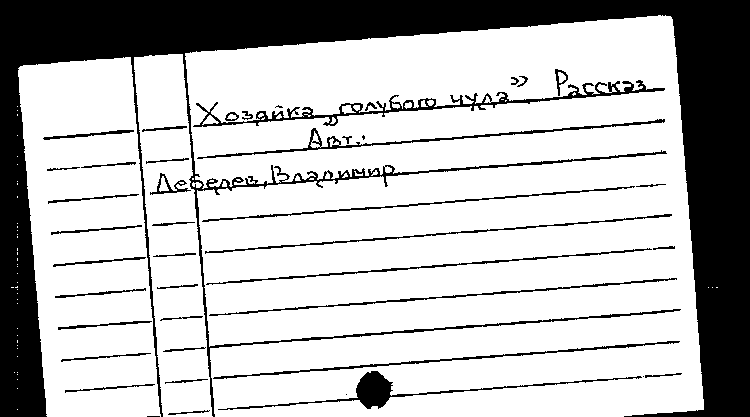 Хозяйка „голубого чуда”. Рассказ
Авт.:
Лебедев, Владимир